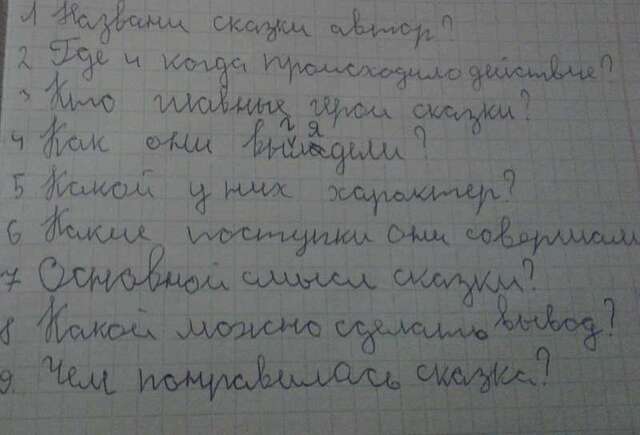 1 Названи сказки автор?
2 Где и когда происходило действие?
3 Кто главные герои сказки?
4 Как они выглядели?
5 Какой у них характер?
6 Какие поступки они совершали
7 Основной смысл сказки?
8 Какой можно сделать вывод?
9 Чем понравилась сказка?